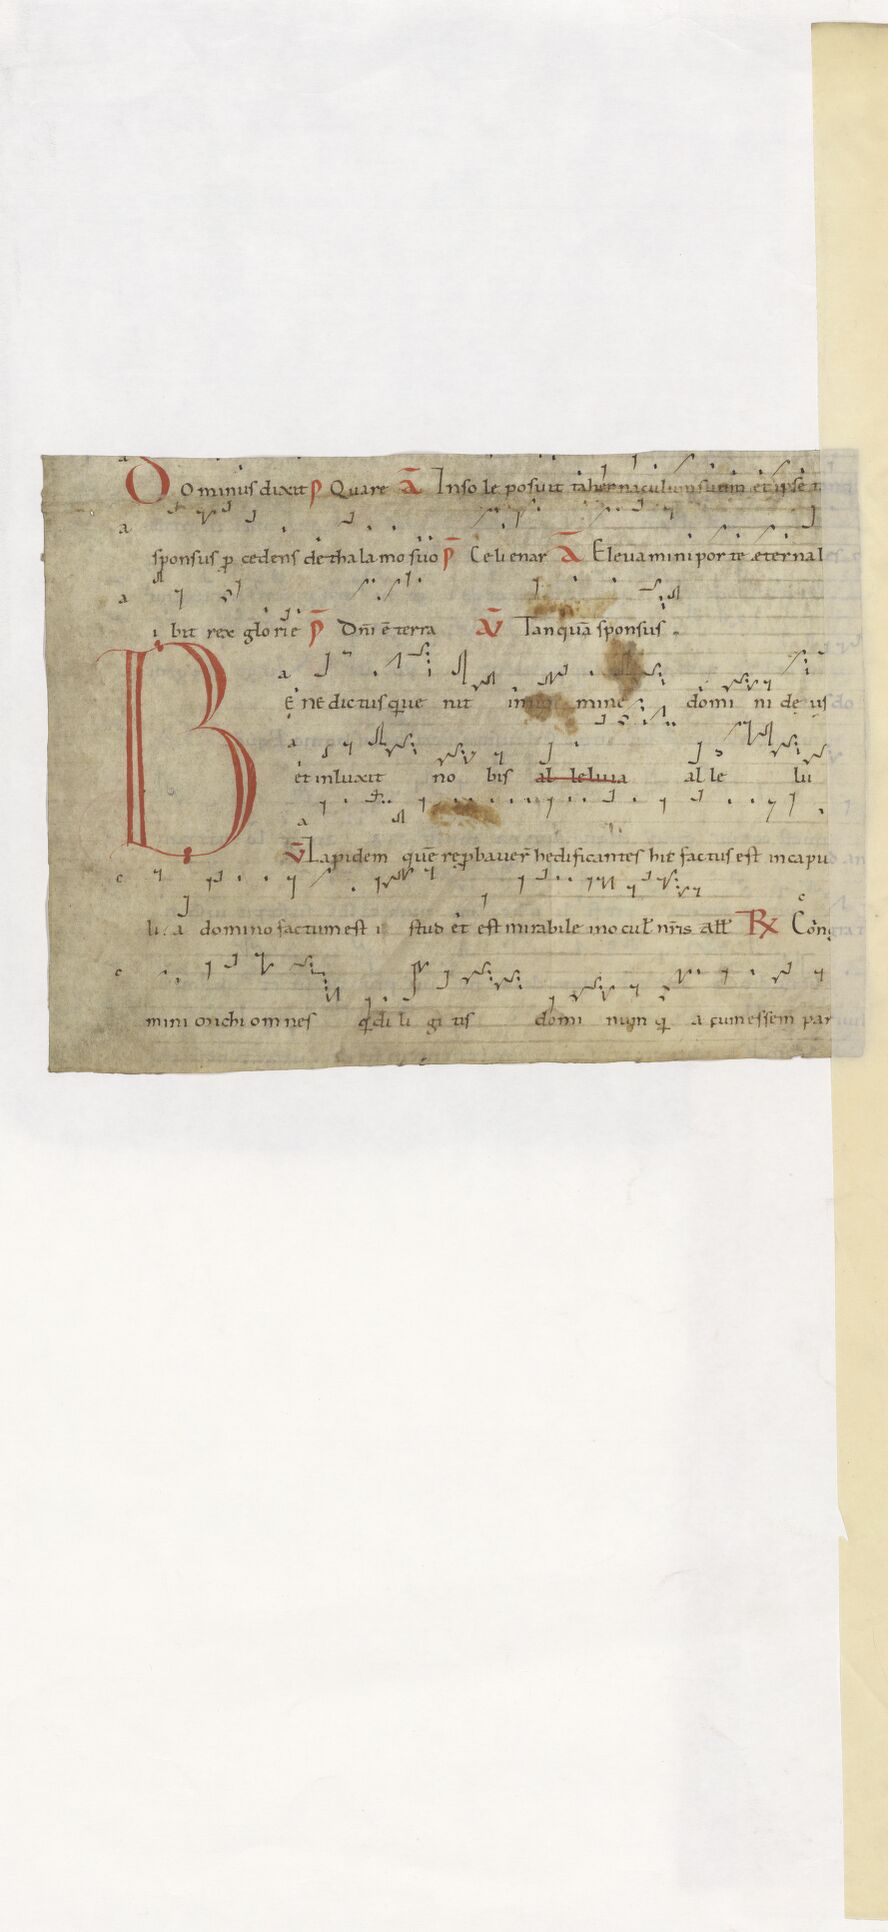 a
Dominus dixit P Quare A In sole posuit tabernaculum suum et ipse t
a
sponsus pcedens de thalamo suo P Celi enar A Elevamini porte eternal
a
i bit rex glorie P Dn̄i ē terra AV Tanquā sponsus.
a
Benedictus que nit mine domini deus
a
et inluxit no bis al leluia al le lu
a
V Lapidem quē repbaver̄ hedificantes hic factus est in capu
c
li. a domino factum est i stud et est mirabile in ocul̄ nr̄is all̄ RX Con
c
mini orichi omnes q di li gi tis domi num q a cum essem par